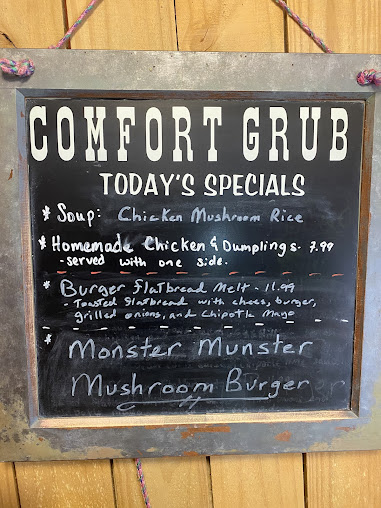 COMFORT GRUB
TODAY'S SPECIALS
* Soup: Chicken Mushroom Rice
* Homemade Chicken & Dumplings. 7.99
- served with one side.
* Burger Flatbread Melt - 11.99
- Toasted flatbread with chees, burger,
grilled onions, and Chipotle Mayo
* Monster Munster
Mushroom Burger